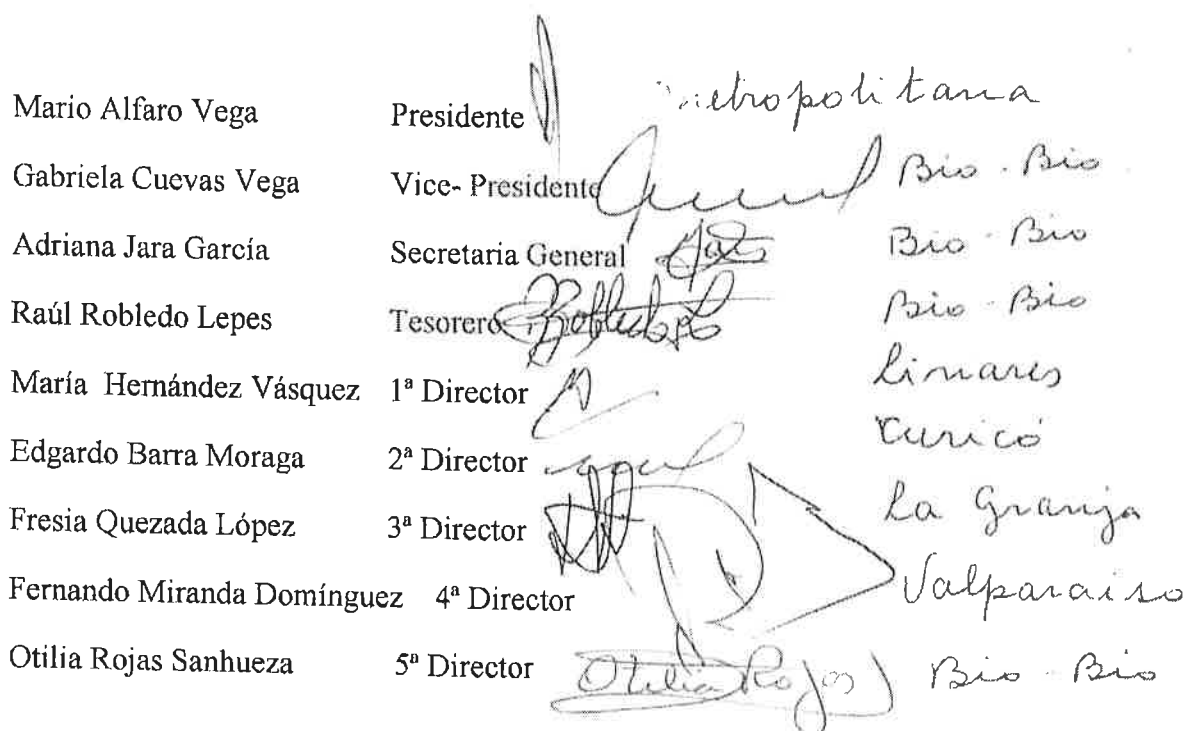 Mario Alfaro Vega Presidente Metropolitana
Gabriela Cuevas Vega Vice- Presidente Bio-Bio
Adriana Jara García Secretaria General Bio-Bio
Raúl Robledo Lepes Tesorero Bio-Bio
María Hernández Vásquez 1ª Director Linares
Edgardo Barra Moraga 2ª Director Curicó
Fresia Quezada López 3ª Director La Granja
Fernando Miranda Domínguez 4ª Director Valparaiso
Otilia Rojas Sanhueza 5ª Director Otilia Rojas Bio-Bio